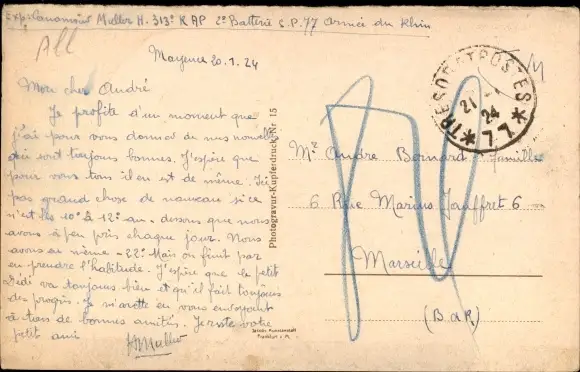 Exp: Canonnier Muller H. 313e RAP 2e Batterie S.P. 77 Armée du Rhin
All
Mayence 20.1.24
Mon cher André
Je profite d'un moment que
j'ai pour vous donner de mes nouvelles
qui sont toujours bonnes. J'espère que
pour vous tous il en est de même. Ici
pas grand chose de nouveau si ce
n'est les 10° à 12° au-dessous que nous
avons à peu près chaque jour. Nous
avons eu même -22° Mais on finit par
en prendre l'habitude. J'espère que le petit
Dédi va toujours bien et qu'il fait toujours
des progrès. Je m'arrête en vous envoyant
à tous de bonnes amitiés. Je reste votre
petit ami
HMuller
Photogravur-Kupferdruck Nr 15
Frankfurt a. M.
TRESOR ET POSTES
21 - 1
24
* 77 *
Mr André Bernard & famille
6 Rue Marius Jauffret 6
Marseille
(B.d.R.)